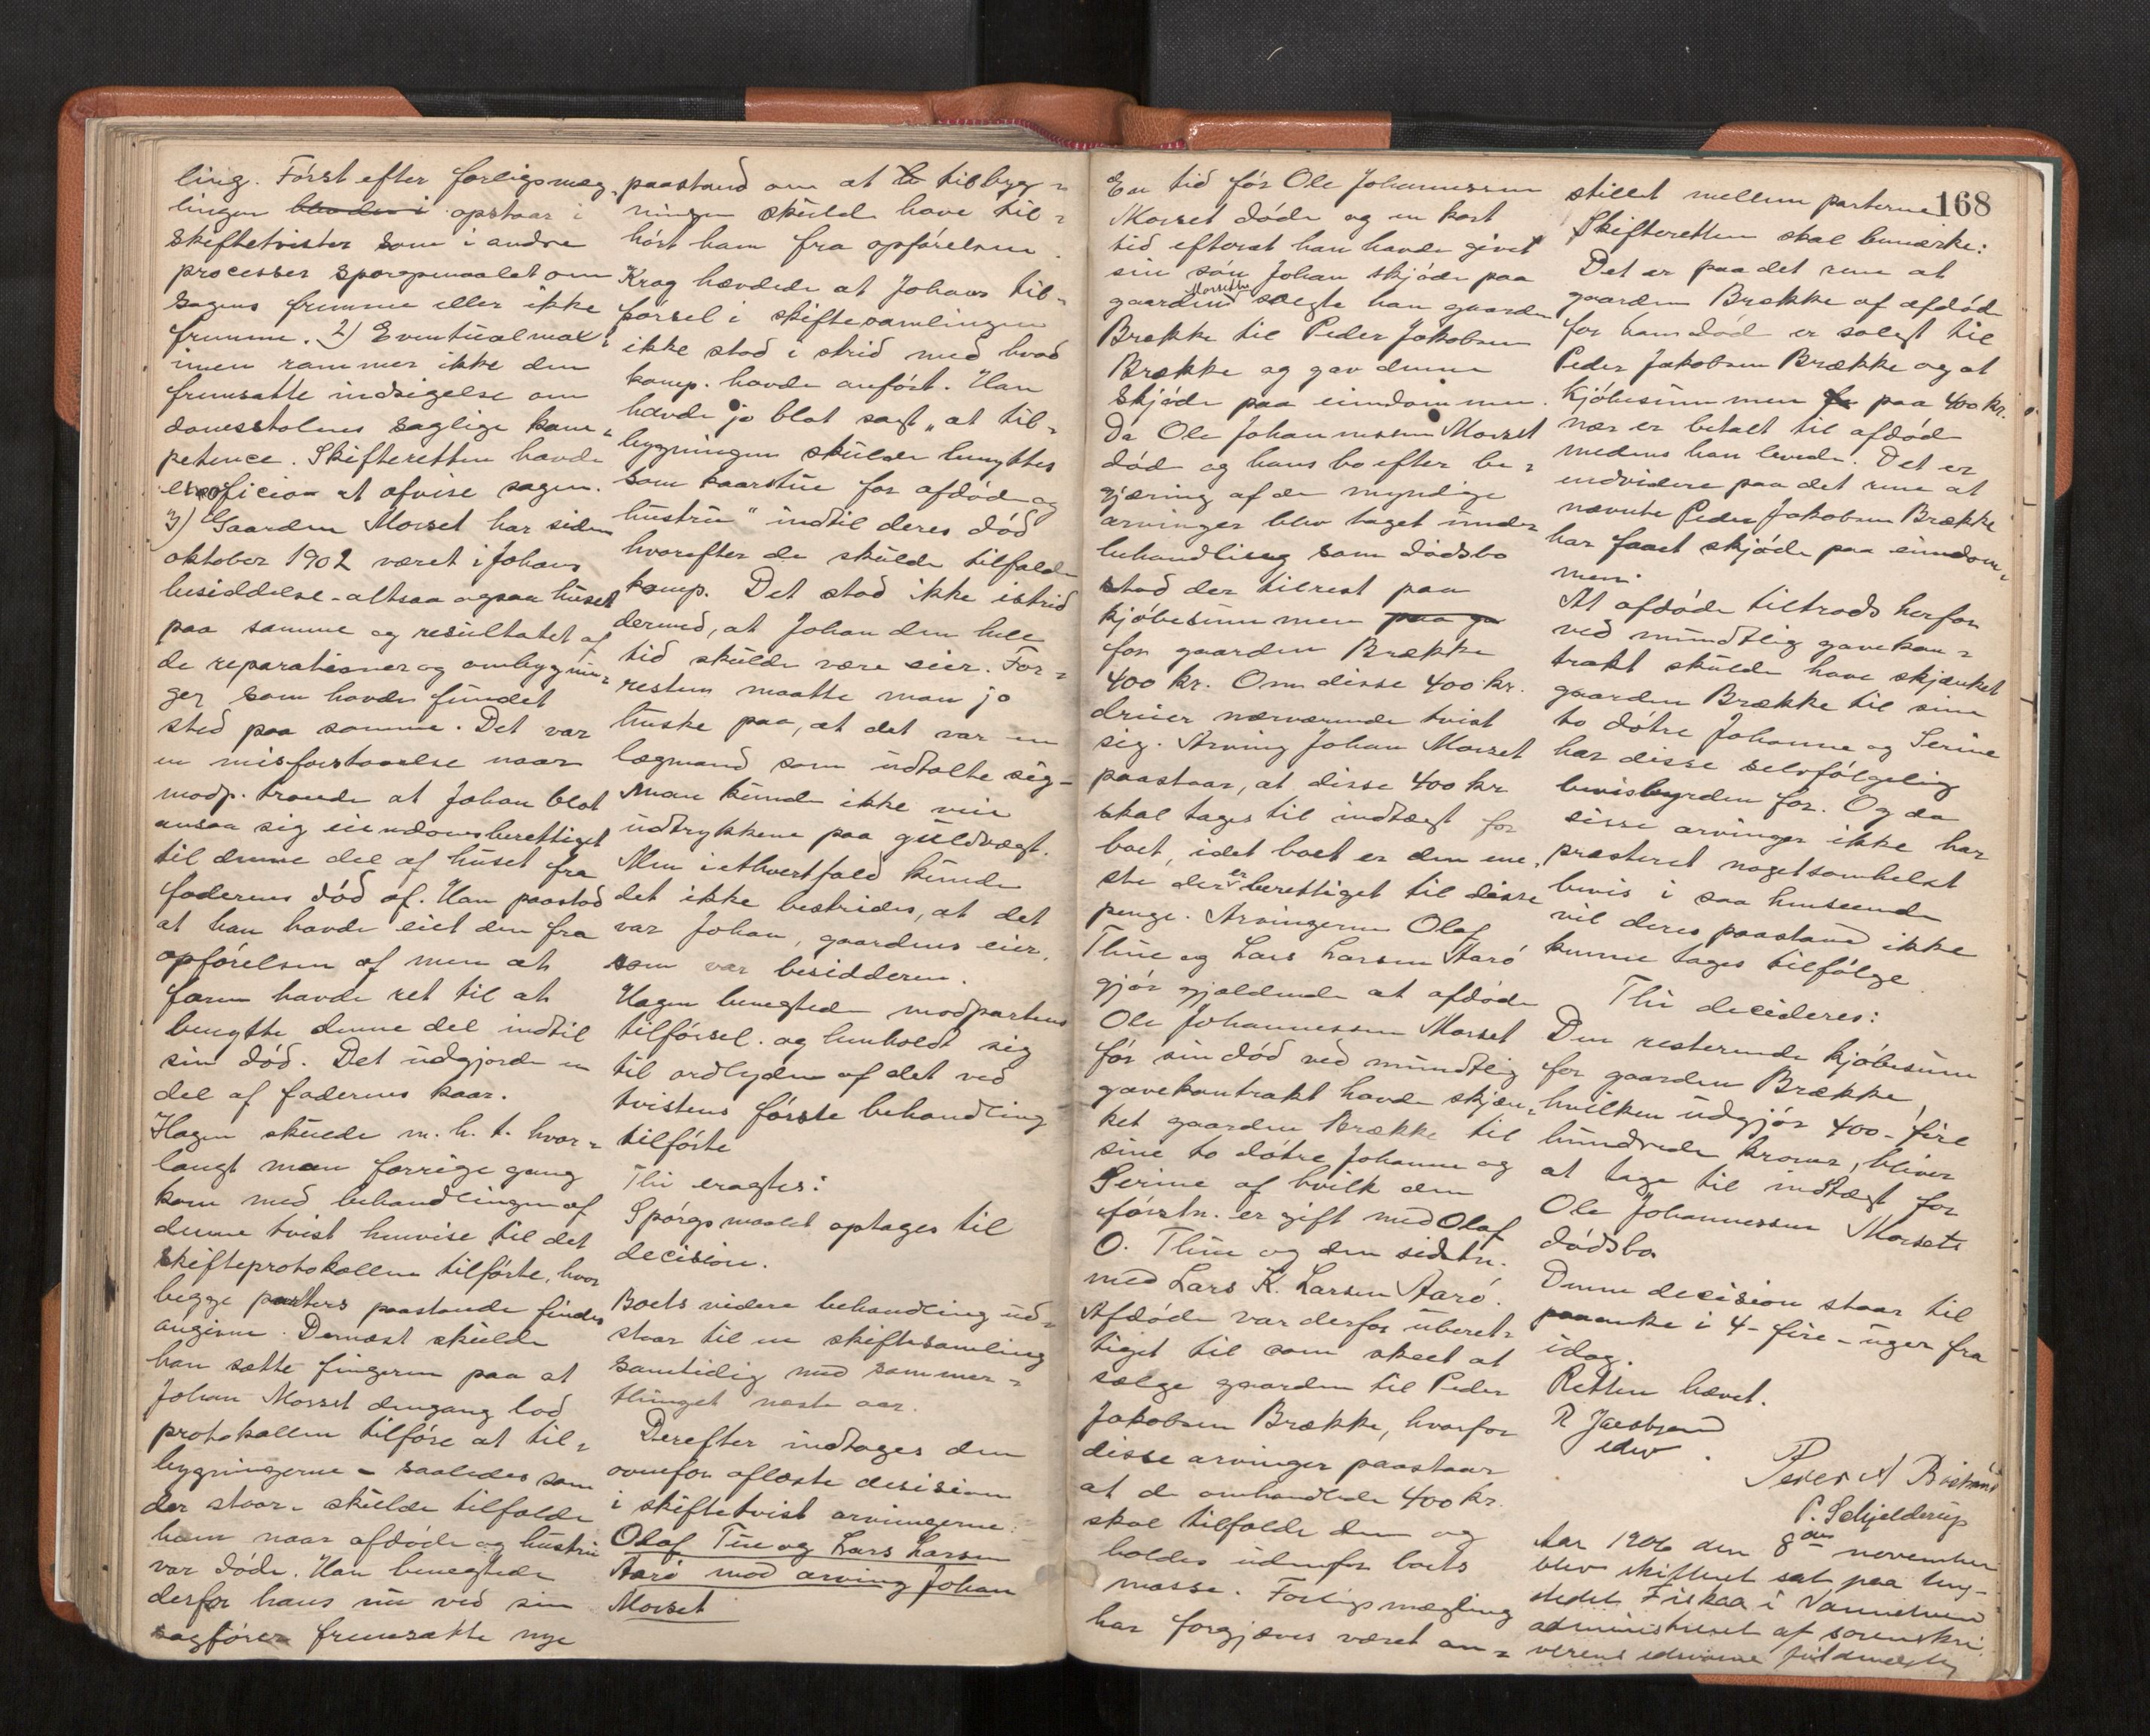 ling. Først efter forligsmæg-
lingen blander i opstaar i
skiftetvister som i andre
processer spørgsmaalet om
sagens fremme eller ikke
fremme. 2) Eventualmax-
imen rammer ikke den
fremsatte indsigelse om
domsstolenes saglige kom-
petence. Skifteretten havde
ex officio at afvise sagen.
3) Gaarden Morset har siden
oktober 1902 været i Johans
besiddelse - altsaa ogsaa huset
paa samme og resultatet af
de reparationer og ombygnin-
ger som havde fundet
sted paa somme. Det var
en misforstaaelse naar
modp. troede at Johan blot
ansaa sig eiendomsberettiget
til denne del af huset fra
faderens død af. Han paastod
at han havde eiet den fra
opførelsen af men at
faren havde ret til at
benytte denne del indtil
sin død. Det udgjorde en
del af faderens kaar.
Hagen skulde m. h. t. hvor-
langt man forrige gang
kom med behandlingen af
denne tvist henvise til det
skifteprotokollen tilførte, hvor
begge parters paastande findes
angivne. Dernæst skulde
han sætte fingeren paa at
Johan Morset dengang lod
protokollen tilføre at til-
bygningerne - saaledes som
der staar - skulde tilfalde
ham naar afdøde og hustru
var døde. Han benegtede
derfor hans nu ved sin
sagfører fremsatte nye
paastand om at tilbyg-
ningen skulde have til-
hørt ham fra opførelsen.
Krag hævdede at Johans til-
førsel i skiftesamlingen
ikke stod i strid med hvad
komp. havde anført. Han
havde jo blot sagt "at til-
bygningen skulde benyttes
som kaarstue for afdøde og
hustru" indtil deres død
hvorefter de skulde tilfalde
komp. Det stod ikke istrid
dermed, at Johan den hele
tid skulde være eier. For-
resten maatte man jo
huske paa, at det var en
lægmand som udtalte sig -
Man kunde ikke veie
udtrykkene paa guldvægt.
Men i ethvertfald kunde
det ikke bestrides, at det
var Johan, gaardens eier,
som var besidderen.
Hagen benegtede modpartens
tilførsel og henholdt sig
til ordlyden af det ved
tvistens første behandling
tilførte
Thi eragtes:
Spørgsmaalet optages til
decision.
Boets videre behandling ud-
staar til en skiftesamling
samtidig med sommer-
thinget næste aar.
Derefter indtages den
ovenfor aflæste decision
i skiftetvist arvingerne:
Olaf Tue og Lars Larsen
Aarø mod arving Johan
Morset
168
En tid før Ole Johannessen
Morset døde og en kort
tid efterat han havde givet
sin søn Johan skjøde paa
gaarden Morset solgte han gaarden
Brække til Peder Jakobsen
Brække og gav denne
skjøde paa eiendommen.
Da Ole Johannessen Morset
død og hans bo efter be-
gjæring af de myndige
arvinger blev taget under
behandling som dødsbo
stod der tilrest paa
kjøbesummen paa ga
for gaarden Brække
400 kr. Om disse 400 kr.
dreier nærværende tvist
sig. Arving Johan Morset
paastaar, at disse 400 kr
skal tages til indtægt for
boet, idet boet er den ene-
ste der er berettiget til disse
penge. Arvingerne Olaf
Thue og Lars Larsen Aarø
gjør gjældende at afdøde
Ole Johannessen Morset
før sin død ved mundtlig
gavekontrakt havde skjæn-
ket gaarden Brække til
sine to døtre Johanne og
Serine af hvilk den
førstn. er gift med Olaf
O. Thue og den sidstn.
med Lars K. Larsen Aarø.
Afdøde var derfor uberet-
tiget til som skeet at
sælge gaarden til Peder
Jakobsen Brække, hvorfor
disse arvinger paastaar
at de omhandlede 400 kr.
skal tilfalde dem og
holdes udenfor boets
masse. Forligsmægling
har forgjæves været an-
stillet mellem parterne
Skifteretten skal bemærke:
Det er paa det rene at
gaarden Brække af afdøde
før hans død er solgt til
Peder Jakobsen Brække og at
kjøbesummen paa 400 kr.
nær er betalt til afdøde
medens han levede. Det er
endvidere paa det rene at
nævnte Peder Jakobsen Brække
har faaet skjøde paa eiendom-
men.
At afdøde tiltrods herfor
ved mundtlig gavekon-
trakt skulde have skjænket
gaarden Brække til sine
to døtre Johanne og Serine
har disse selvfølgelig
bevisbyrden for. Og da
disse arvinger ikke har
præsteret nogetsomhelst
bevis i saa henseende
vil deres paastand ikke
kunne tages tilfølge.
Thi decideres:
Den resterende kjøbesum
for gaarden Brække,
hvilken udgjør 400 - fire
hundrede kroner, bliver
at tage til indtægt for
Ole Johannessen Morsets
dødsbo.
Denne decision staar til
paaanke i 4 - fire - uger fra
idag.
Retten hævet.
R Jacobsen
edsv.
Peder A
P. Schjelderup
Aar 1906 den 8de november
blev skifteret sat paa ting-
stedet Fiskaa i Vannelven
administreret af sorenskri-
verens edsvorne fuldmægtig